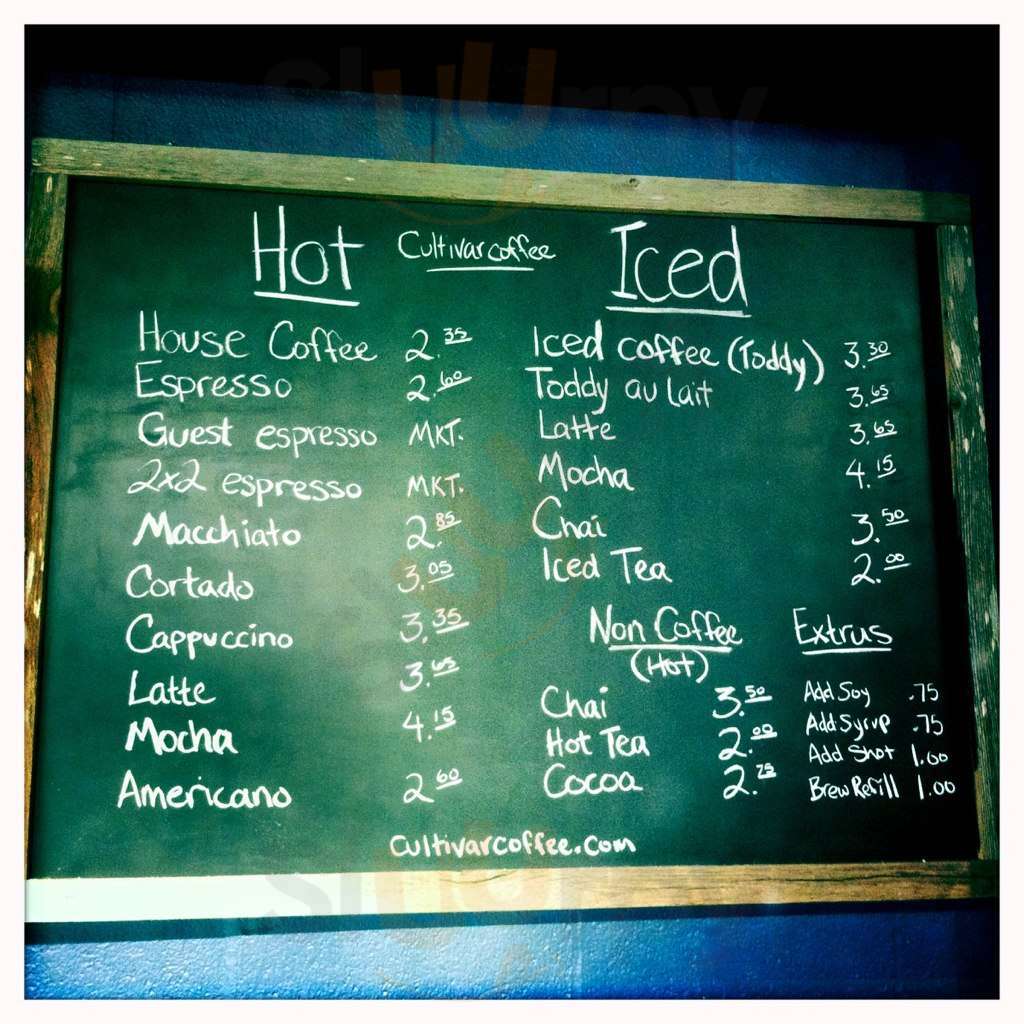 Slurrpy
Cultivar coffee
Hot
House Coffee 2.35
Espresso 2.60
Guest espresso MKT.
2x2 espresso MKT.
Macchiato 2.85
Cortado 3.05
Cappuccino 3.35
Latte 3.65
Mocha 4.15
Americano 2.60
Iced
Iced coffee (Toddy) 3.30
Toddy au Lait 3.65
Latte 3.65
Mocha 4.15
Chai 3.50
Iced Tea 2.00
Non Coffee
(Hot)
Chai 3.50
Hot Tea 2.00
Cocoa 2.75
Extrus
Add Soy .75
Add Syrup .75
Add Shot 1.00
Brew Refill 1.00
cultivarcoffee.com